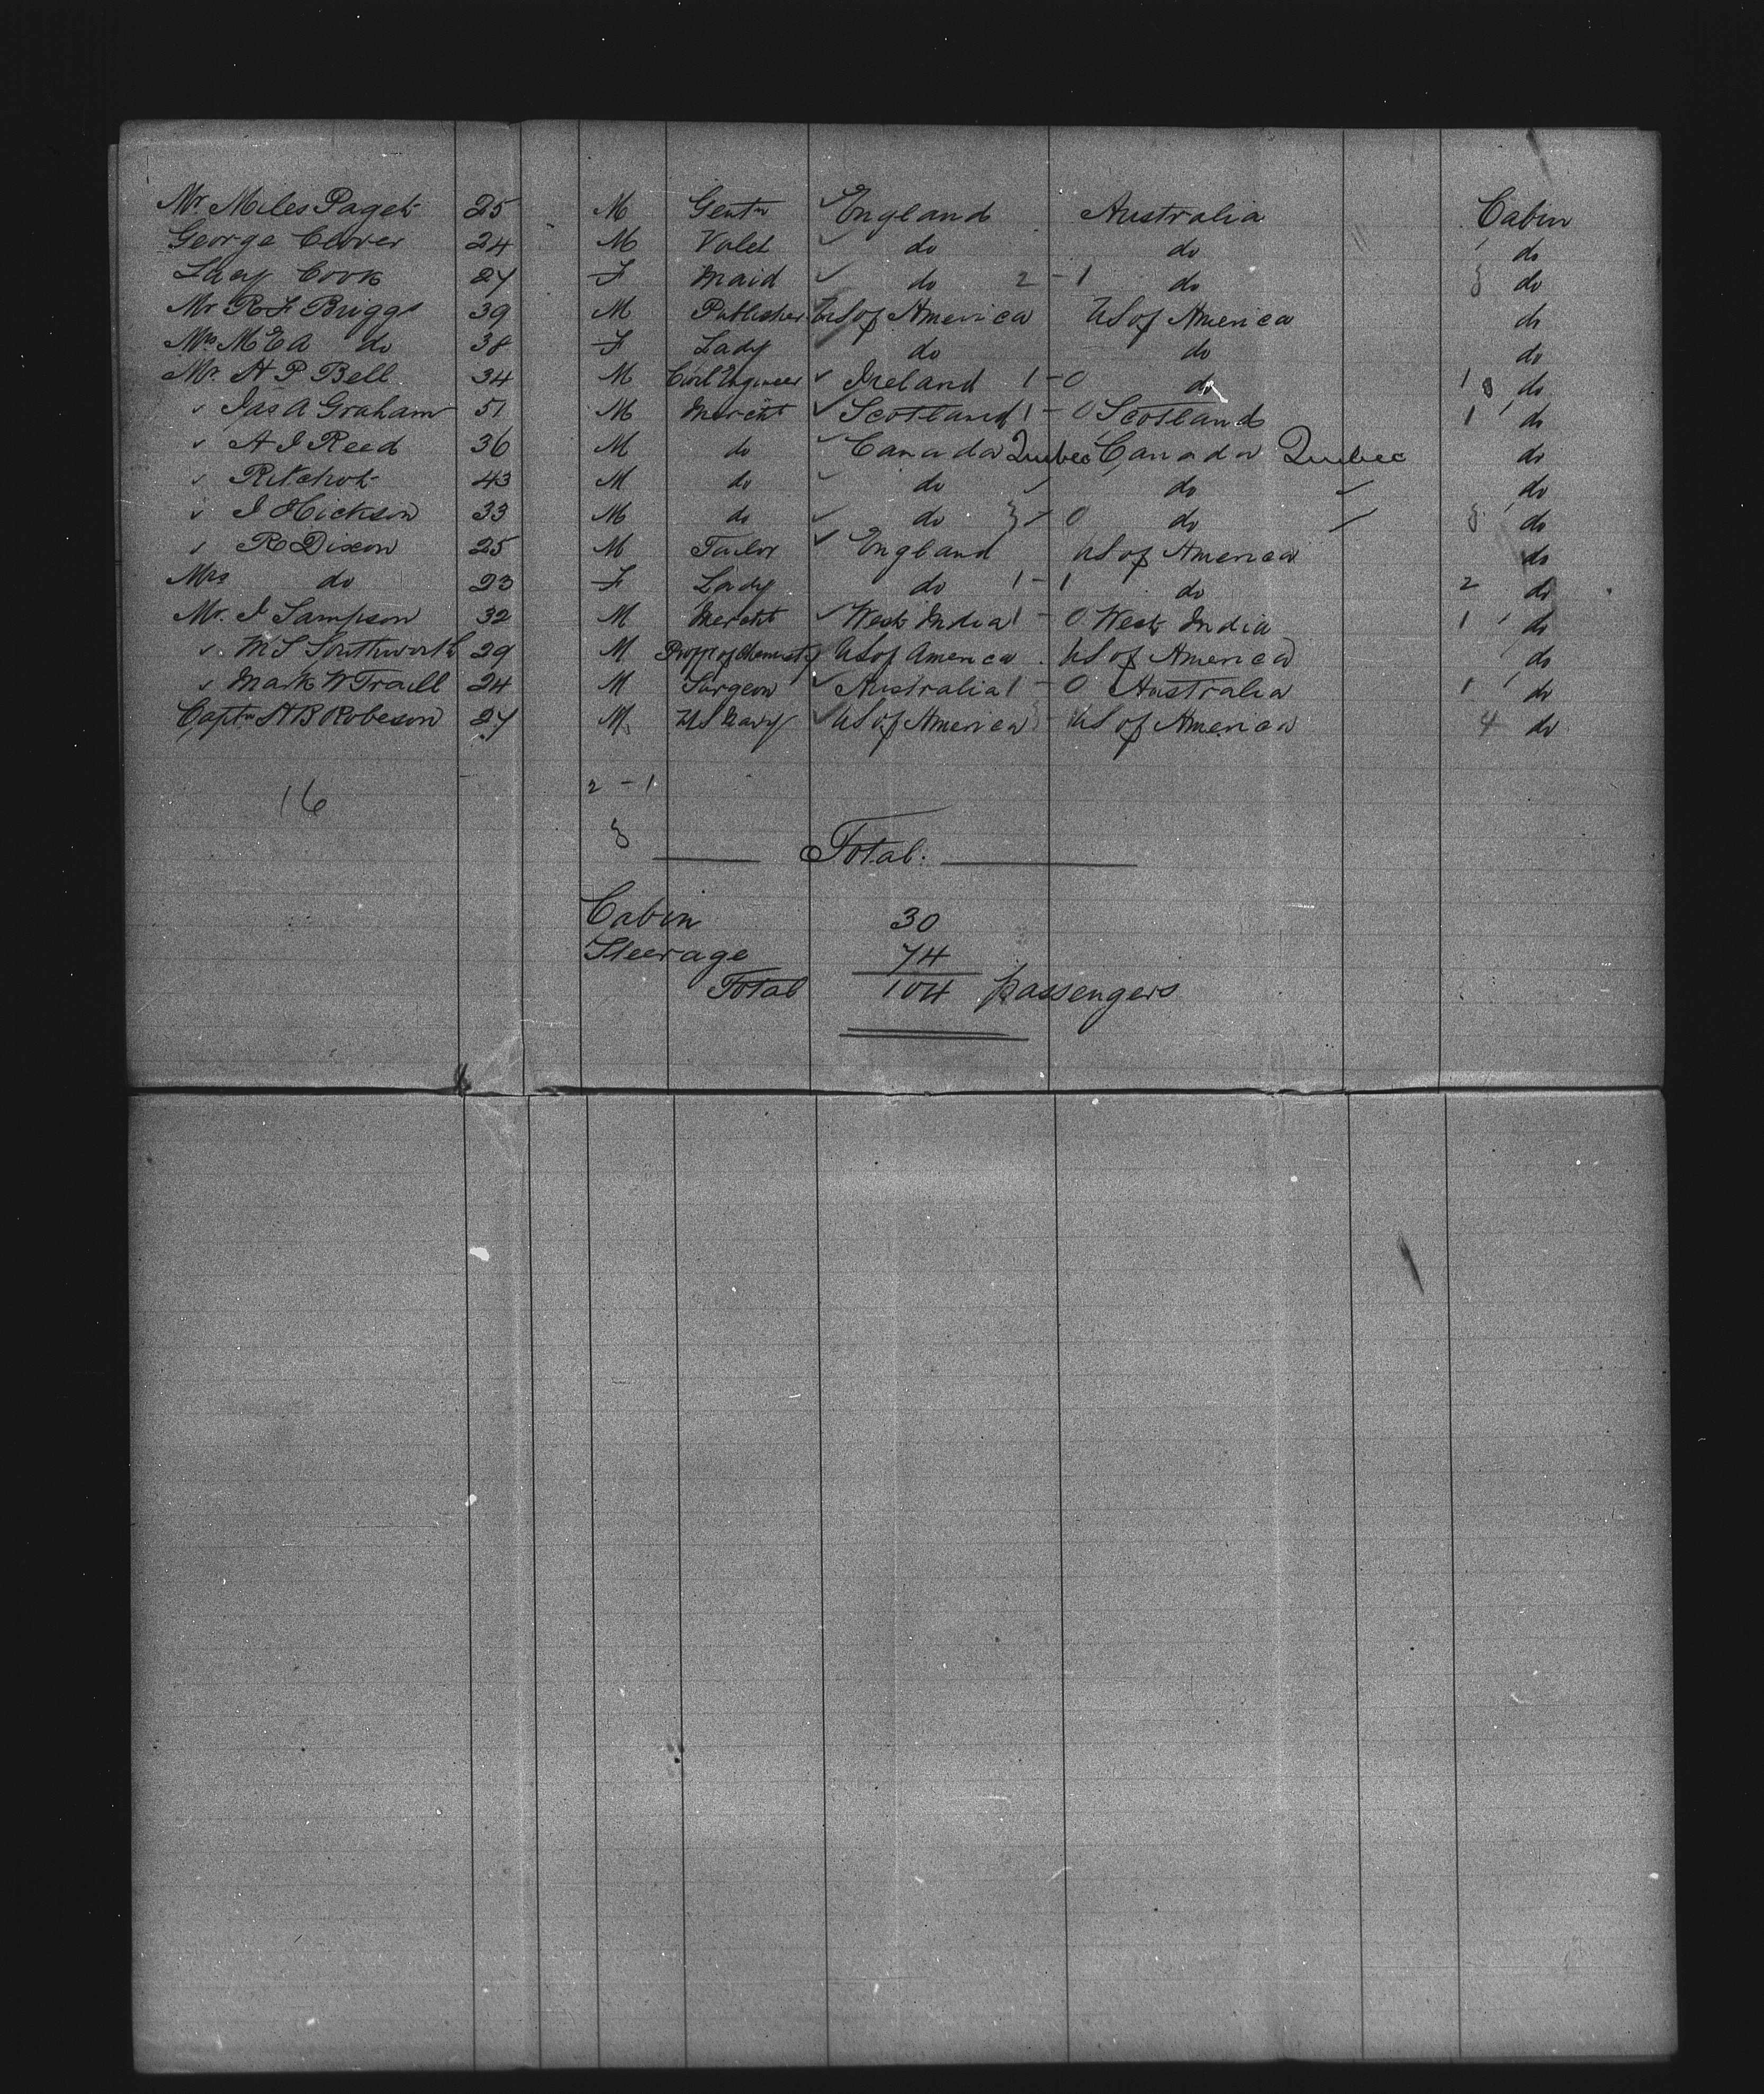 Mr Miles Paget 25 M Gentn ✓ England Australia Cabin
George Clover 24 M Valet ✓ do do ' do
Lacy Cook 27 F Maid ✓ do 2 - 1 do 3 do
Mr R F Briggs 39 M Publisher ✓ US of America US of America do
Mrs M E A do 38 F Lady do do do
Mr. H P Bell 34 M Civil Engineer ✓ Ireland 1 - 0 do 1 3 do
" Jas A Graham 51 M Mercht ✓ Scotland 1 - 0 Scotland 1 ' do
" A J Reed 36 M do ✓ Canada Quebec Canada Quebec do
" 43 M do ✓ do ✓ do ✓ do
" J Hickson 33 M do ✓ do 3 / 0 do / 3 ' do
" R Dixon 25 M Tailor ✓ England US of America do
Mrs do 23 F Lady do 1 - 1 do 2 do
Mr. J Sampson 32 M Mercht ✓ West India 1 - 0 West India 1 ' do
" M S Southworth 29 M Proffr of Chemisty US of America US of America do
" Mark W Traill 24 M Surgeon ✓ Australia 1 - 0 Australia 1 ' do
Captn H B Robeson 27 M US Navy ✓ US of America US of America 4 do
16 2 - 1
3
Total.
Cabin 30
Steerage 74
Total 104 passengers